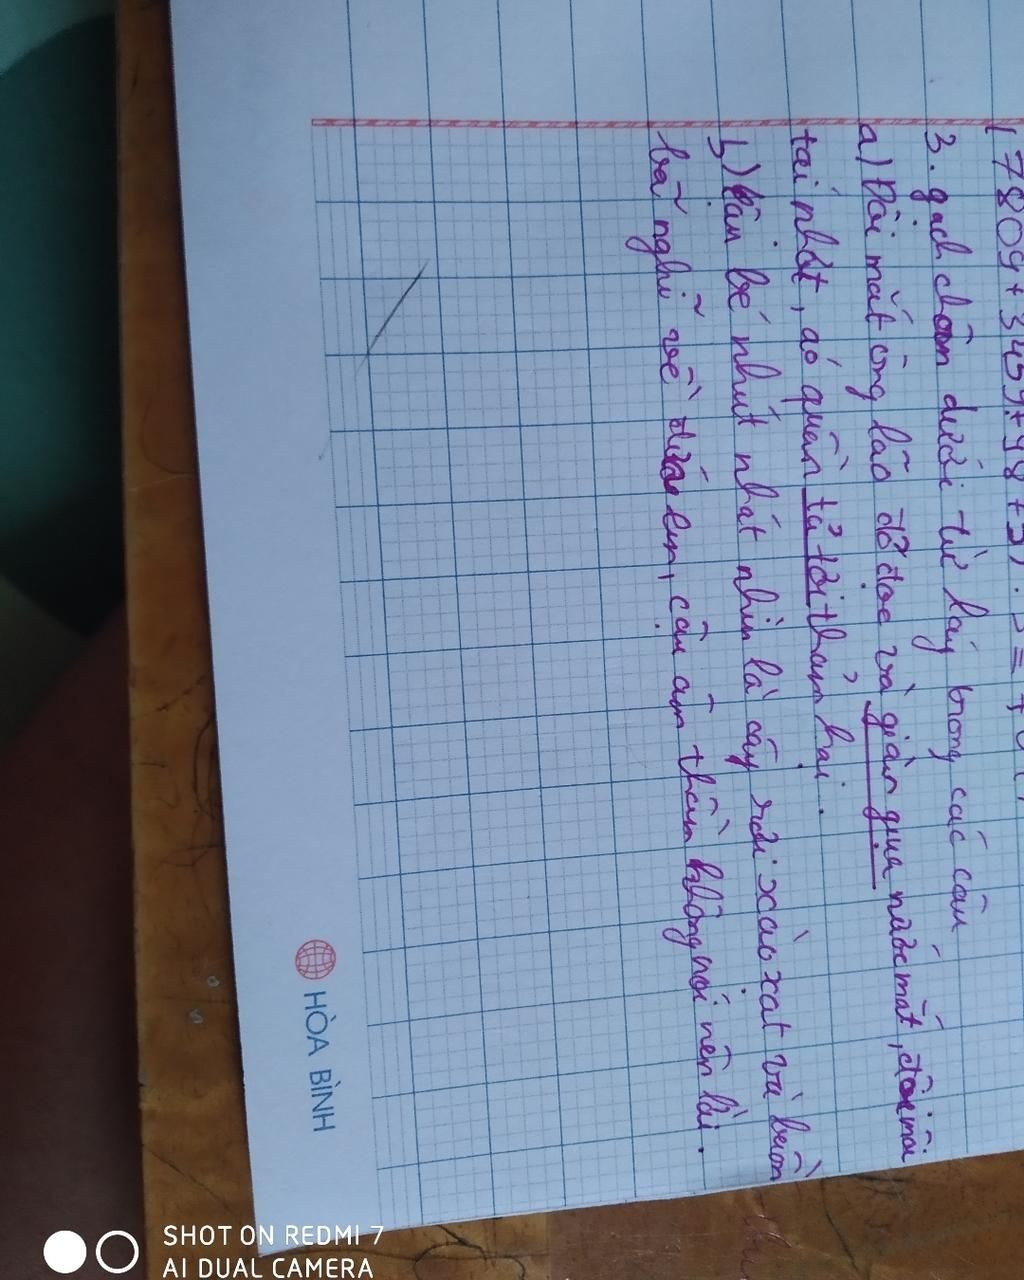 3. gạch chân dưới từ láy trong các câu
a) Đôi mắt ông lão đỏ đọc và giàn giụa nước mắt, đôi môi
tái nhợt, áo quần tả tơi thảm hại.
b) Cậu bé nhút nhát nhìn lá cây rơi xào xạt và buồn
bã nghĩ về dưới lên, cậu âm thầm không nói nên lời.
HÒA BÌNH
SHOT ON REDMI 7
AI DUAL CAMERA